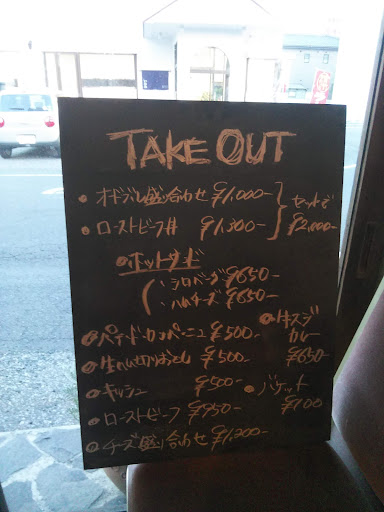 TAKE OUT
• オードブル盛り合わせ ¥1,000-
• ローストビーフ丼 ¥1,300-
セットで ¥2,000-
• ホットサンド
・シロベーグ ¥650-
・ハムチーズ ¥650-
• パテ・ド・カンパーニュ ¥500-
• 生ハム切りおとし ¥500-
• キッシュ ¥500-
• ローストビーフ ¥950-
• チーズ盛り合わせ ¥1,200-
• 牛スジカレー ¥650-
• バケット ¥100